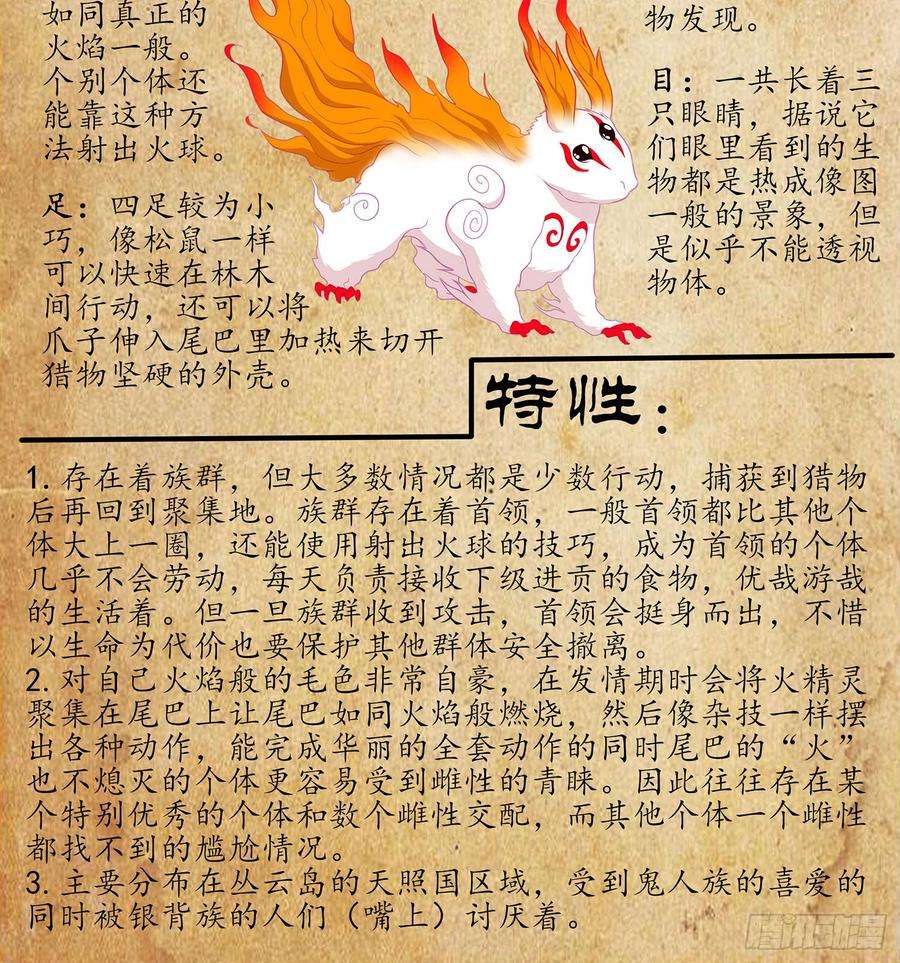 如同真正的
火焰一般。
个别个体还
能靠这种方
法射出火球。
足：四足较为小
巧，像松鼠一样
可以快速在林木
间行动，还可以将
爪子伸入尾巴里加热来切开
猎物坚硬的外壳。
物发现。
目：一共长着三
只眼睛，据说它
们眼里看到的生
物都是热成像图
一般的景象，但
是似乎不能透视
物体。
特性：
1. 存在着族群，但大多数情况都是少数行动，捕获到猎物
后再回到聚集地。族群存在着首领，一般首领都比其他个
体大上一圈，还能使用射出火球的技巧，成为首领的个体
几乎不会劳动，每天负责接收下级进贡的食物，优哉游哉
的生活着。但一旦族群收到攻击，首领会挺身而出，不惜
以生命为代价也要保护其他群体安全撤离。
2. 对自己火焰般的毛色非常自豪，在发情期时会将火精灵
聚集在尾巴上让尾巴如同火焰般燃烧，然后像杂技一样摆
出各种动作，能完成华丽的全套动作的同时尾巴的“火”
也不熄灭的个体更容易受到雌性的青睐。因此往往存在某
个特别优秀的个体和数个雌性交配，而其他个体一个雌性
都找不到的尴尬情况。
3. 主要分布在丛云岛的天照国区域，受到鬼人族的喜爱的
同时被银背族的人们（嘴上）讨厌着。
腾讯动漫